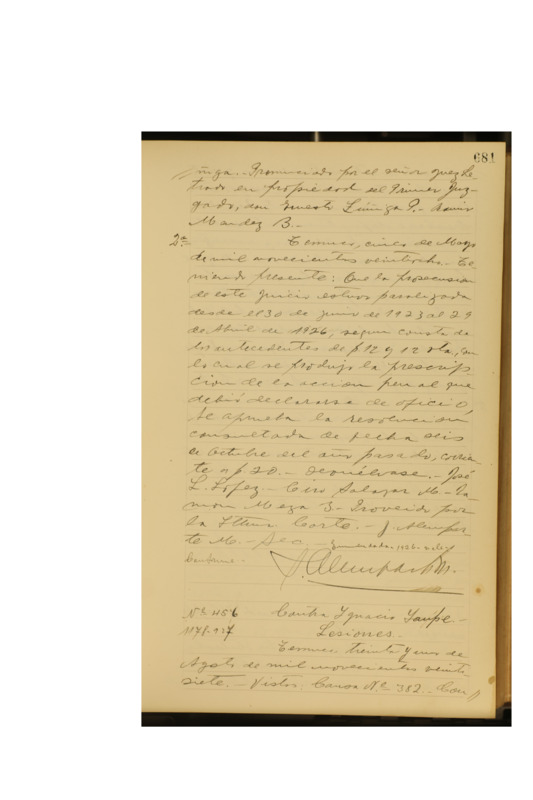 681
ñiga.- Pronunciado por el señor juez le-
trado en propiedad del Primer Juz-
gado, don Ernesto Zúñiga P.- Ramir
Mendez B.-
2ª Temuco, cinco de Mayo
de mil novecientos veintiocho.- Te-
niendo presente: Que la prosecusion
de este juicio estuvo paralizada
desde el 30 de junio de 1923 al 29
de Abril de 1926, segun consta de
los antecedentes de f 12 y 12 vta, con
lo cual se produjo la prescrip-
cion de la accion penal que
debió declararse de oficio,
se aprueba la resolucion
consultada de fecha seis
de Octubre del año pasado, corrien-
te a f 20.- Devuélvase.- José
L. López.- Ciro Salazar M.- Ra-
mon Meza 3.- Proveido por
la Iltma Corte.- J. Alempar-
te M.- Sec.- Enmendado.-1926.-vale.-
Conforme.-
Nº 456 Contra Ygnacio
1178.927 Lesiones.
Temuco, treinta y uno de
Agosto de mil novecientos veinti-
siete.- Vistos: Causa Nº 382. Con